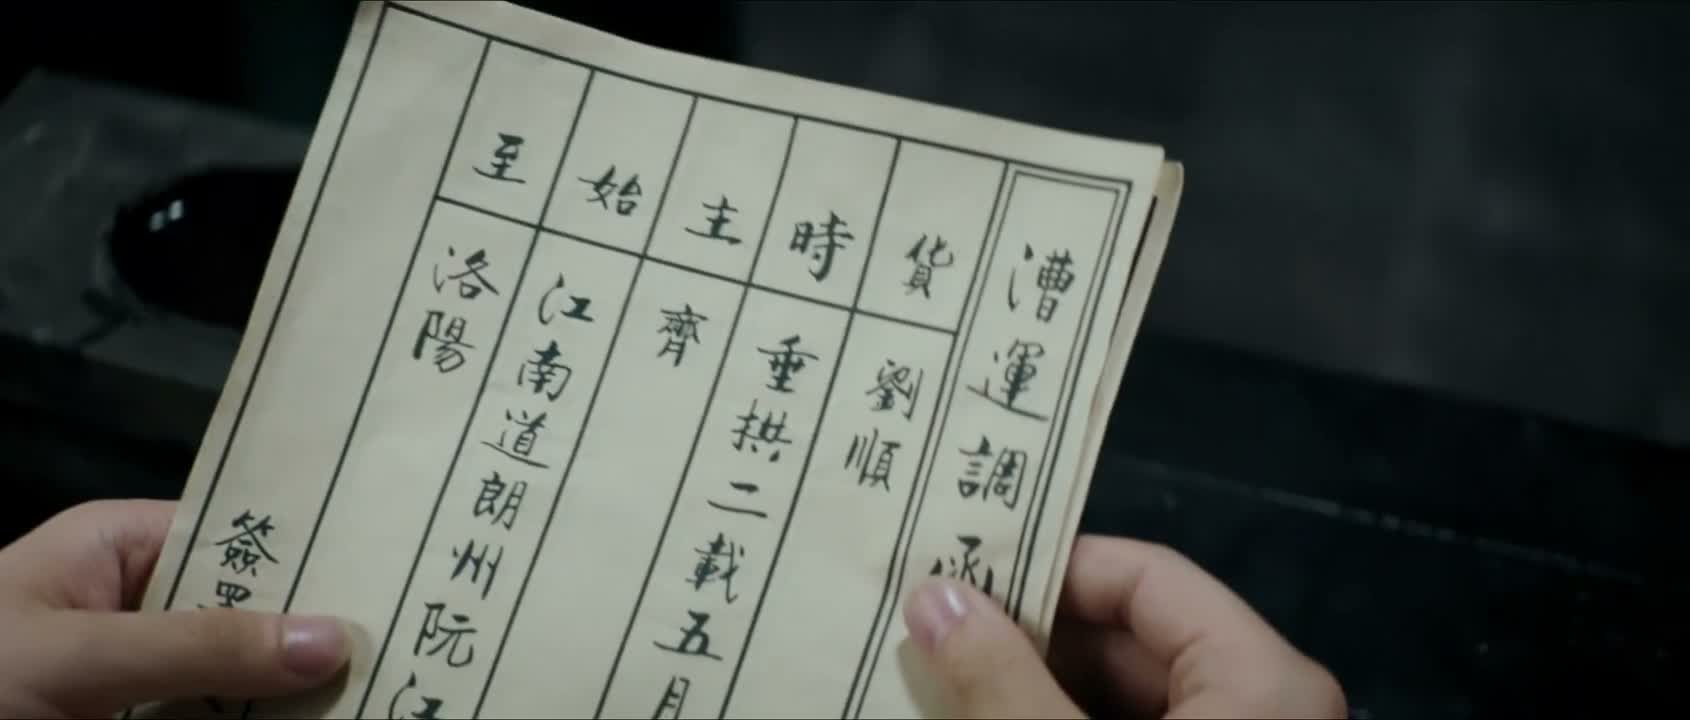 漕運調函
貨 劉順
時 垂拱二載五月
主 齊
始 江南道朗州阮江
至 洛陽
簽署